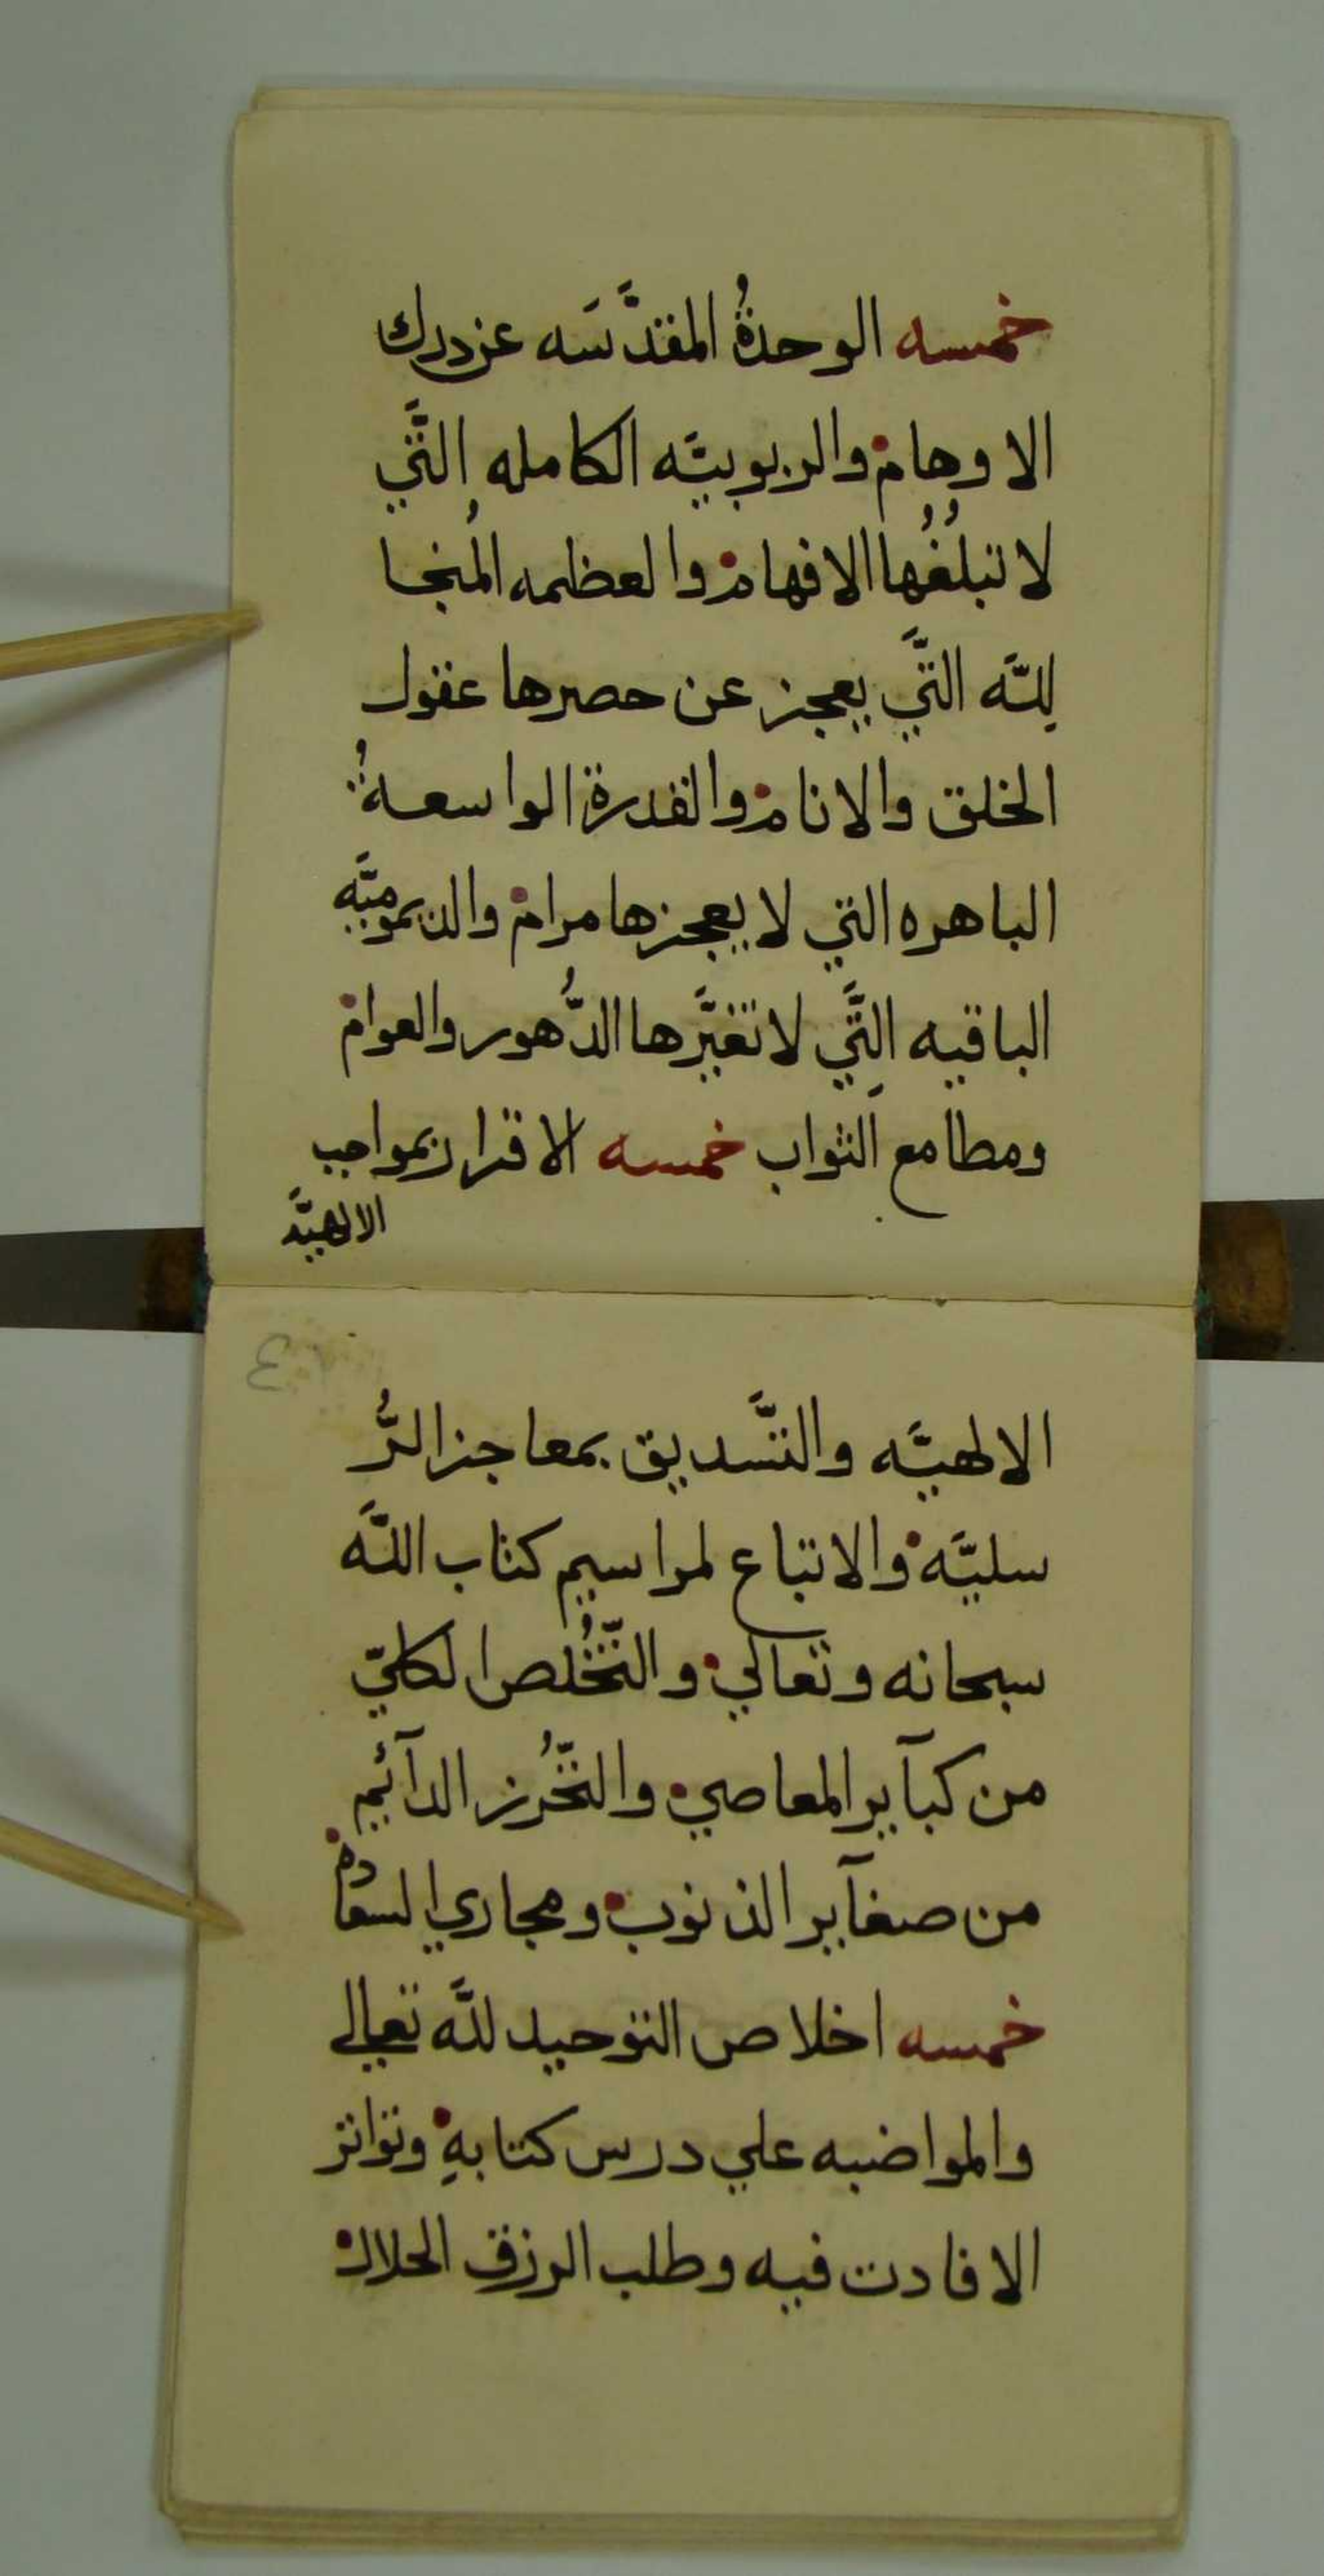 خمسه الوحدةُ المقدَّسَه عن درك
الاوهام والربوبيَّه الكامله التَّي
لا تبلُغُها الافهام والعظمه المُنجا
للَّه التَّي يعجز عن حصرها عقول
الخلق والانام والقدرة الواسعةُ
الباهره التي لا يعجزها مرام والديموميَّه
الباقيه التَّي لا تغيَّرها الدُّهور والعوام
ومطامع الثواب خمسه الاقرار بمواجب
الالهيَّه
الالهيَّه والتَّسديق بمعاجز الرُّ
سليَّه والاتباع لمراسيم كتاب اللَّه
سبحانه وتعالي والتَّخُلص الكليّ
من كبآير المعاصي والتَّحُرز الدآئيم
من صغآير الذنوب ومجاري السعادة
خمسه اخلاص التوحيد للَّه تعالي
والمواضبه علي درس كتابهِ وتواتر
الافادت فيه وطلب الرزق الحلال